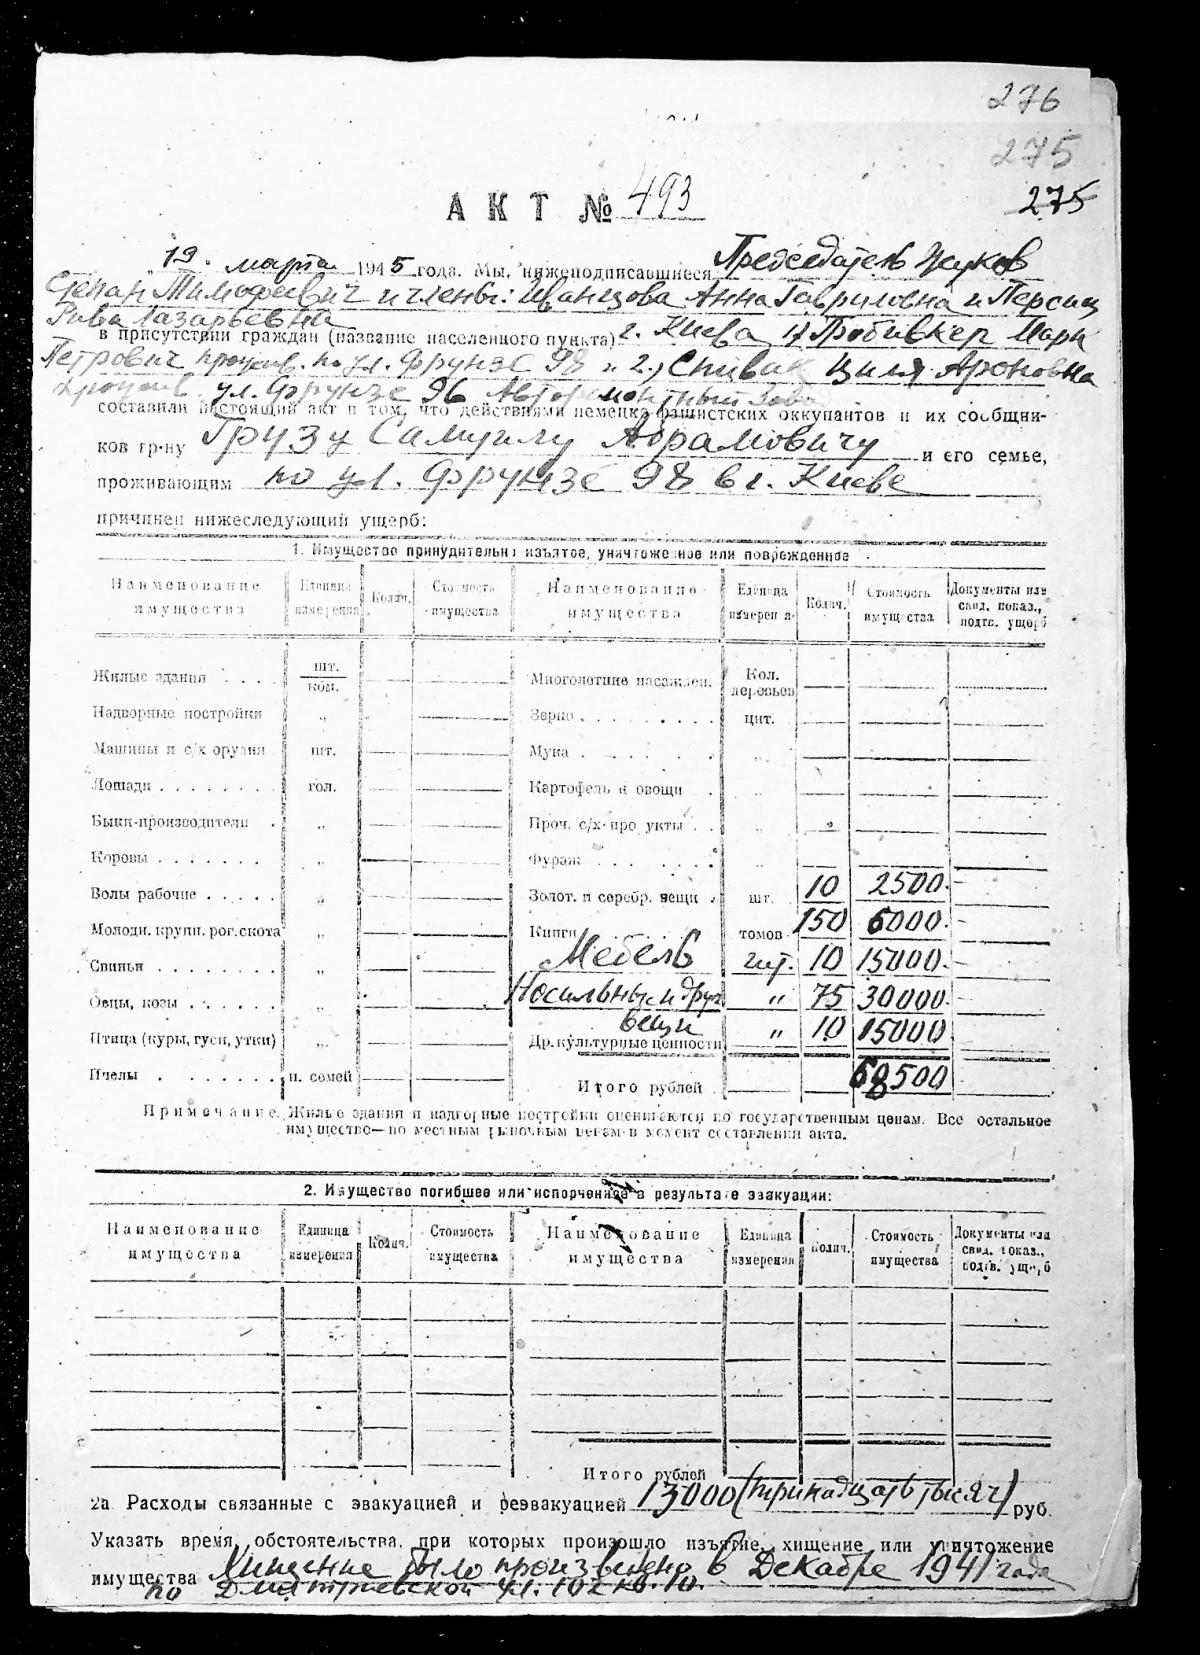 276
275
275
АКТ № 493
19. марта 1945 года. Мы, нижеподписавшиеся Председатель Жуков
Степан Тимофеевич и члены: Иванцова Анна Гавриловна и Персиц
Рива Лазарьевна
в присутствии граждан (название населенного пункта) г. Киева 1) Пробивкер Марк
Петрович прожив. по ул. Фрунзе 98 и 2) Спивак Циля Ароновна
прожив. ул. Фрунзе 96 Авторемонтный завод
составили настоящий акт в том, что действиями немецко-фашистских оккупантов и их сообщни-
ков гр-ну Грузу Самуилу Абрамовичу и его семье,
проживающим по ул. Фрунзе 98 в г. Киеве
причинен нижеследующий ущерб:
1. Имущество принудительно изъятое, уничтоженное или поврежденное
Наименование имущества Единица измерения Колич. Стоимость имущества Наименование имущества Единица измерения Колич. Стоимость имущества Документы или свид. показ., подтв. ущерб
Жилые здания . . . . шт. ком. Многолетние насажден. Кол. деревьев
Надворные постройки „ Зерно . . . . . . . . цнт.
Машины и с/х орудия шт. Мука . . . . . . . „
Лошади . . . . . . . . гол. Картофель и овощи . „
Быки-производители . „ Проч. с/х-продукты . . „
Коровы . . . . . . . „ Фураж . . . . . . . „
Волы рабочие . . . . . „ Золот. и серебр. вещи . шт. 10 2500.-
Молодн. крупн. рог. скота „ Книги томов 150 6000.-
Свиньи . . . . . . . . „ Мебель шт. 10 15000.-
Овцы, козы . . . . . . „ Носильные и друг. вещи „ 75 30000.-
Птица (куры, гуси, утки) „ Др. культурные ценности „ 10 15000
Пчелы . . . . . . . п. семей Итого рублей 68500
Примечание. Жилые здания и надворные постройки оцениваются по государственным ценам. Все остальное
имущество—по местным рыночным ценам в момент составления акта.
2. Имущество погибшее или испорченное в результате эвакуации:
Наименование имущества Единица измерения Колич. Стоимость имущества Наименование имущества Единица измерения Колич. Стоимость имущества Документы или свид. показ., подтв. ущерб
Итого рублей
2а. Расходы связанные с эвакуацией и реэвакуацией 13000 (тринадцать тысяч) руб.
Указать время, обстоятельства, при которых произошло изъятие, хищение или уничтожение
имущества Хищение было произведено в Декабре 1941 года
по Дмитриевской ул. 102 кв. 10.